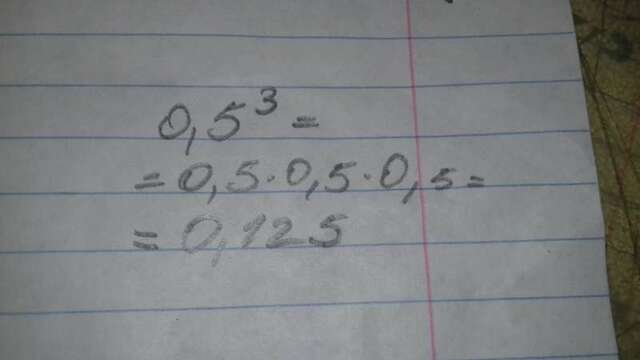 0,5³ =
= 0,5 · 0,5 · 0,5 =
= 0,125